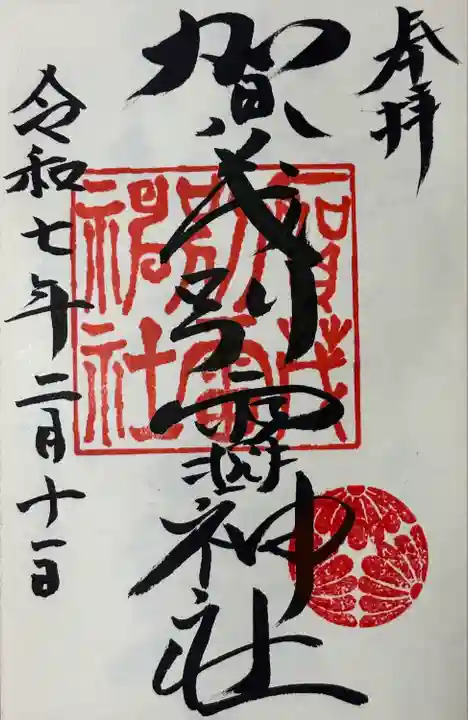 奉拝
賀茂別雷神社
賀茂
別雷
神社
令和七年二月十一日